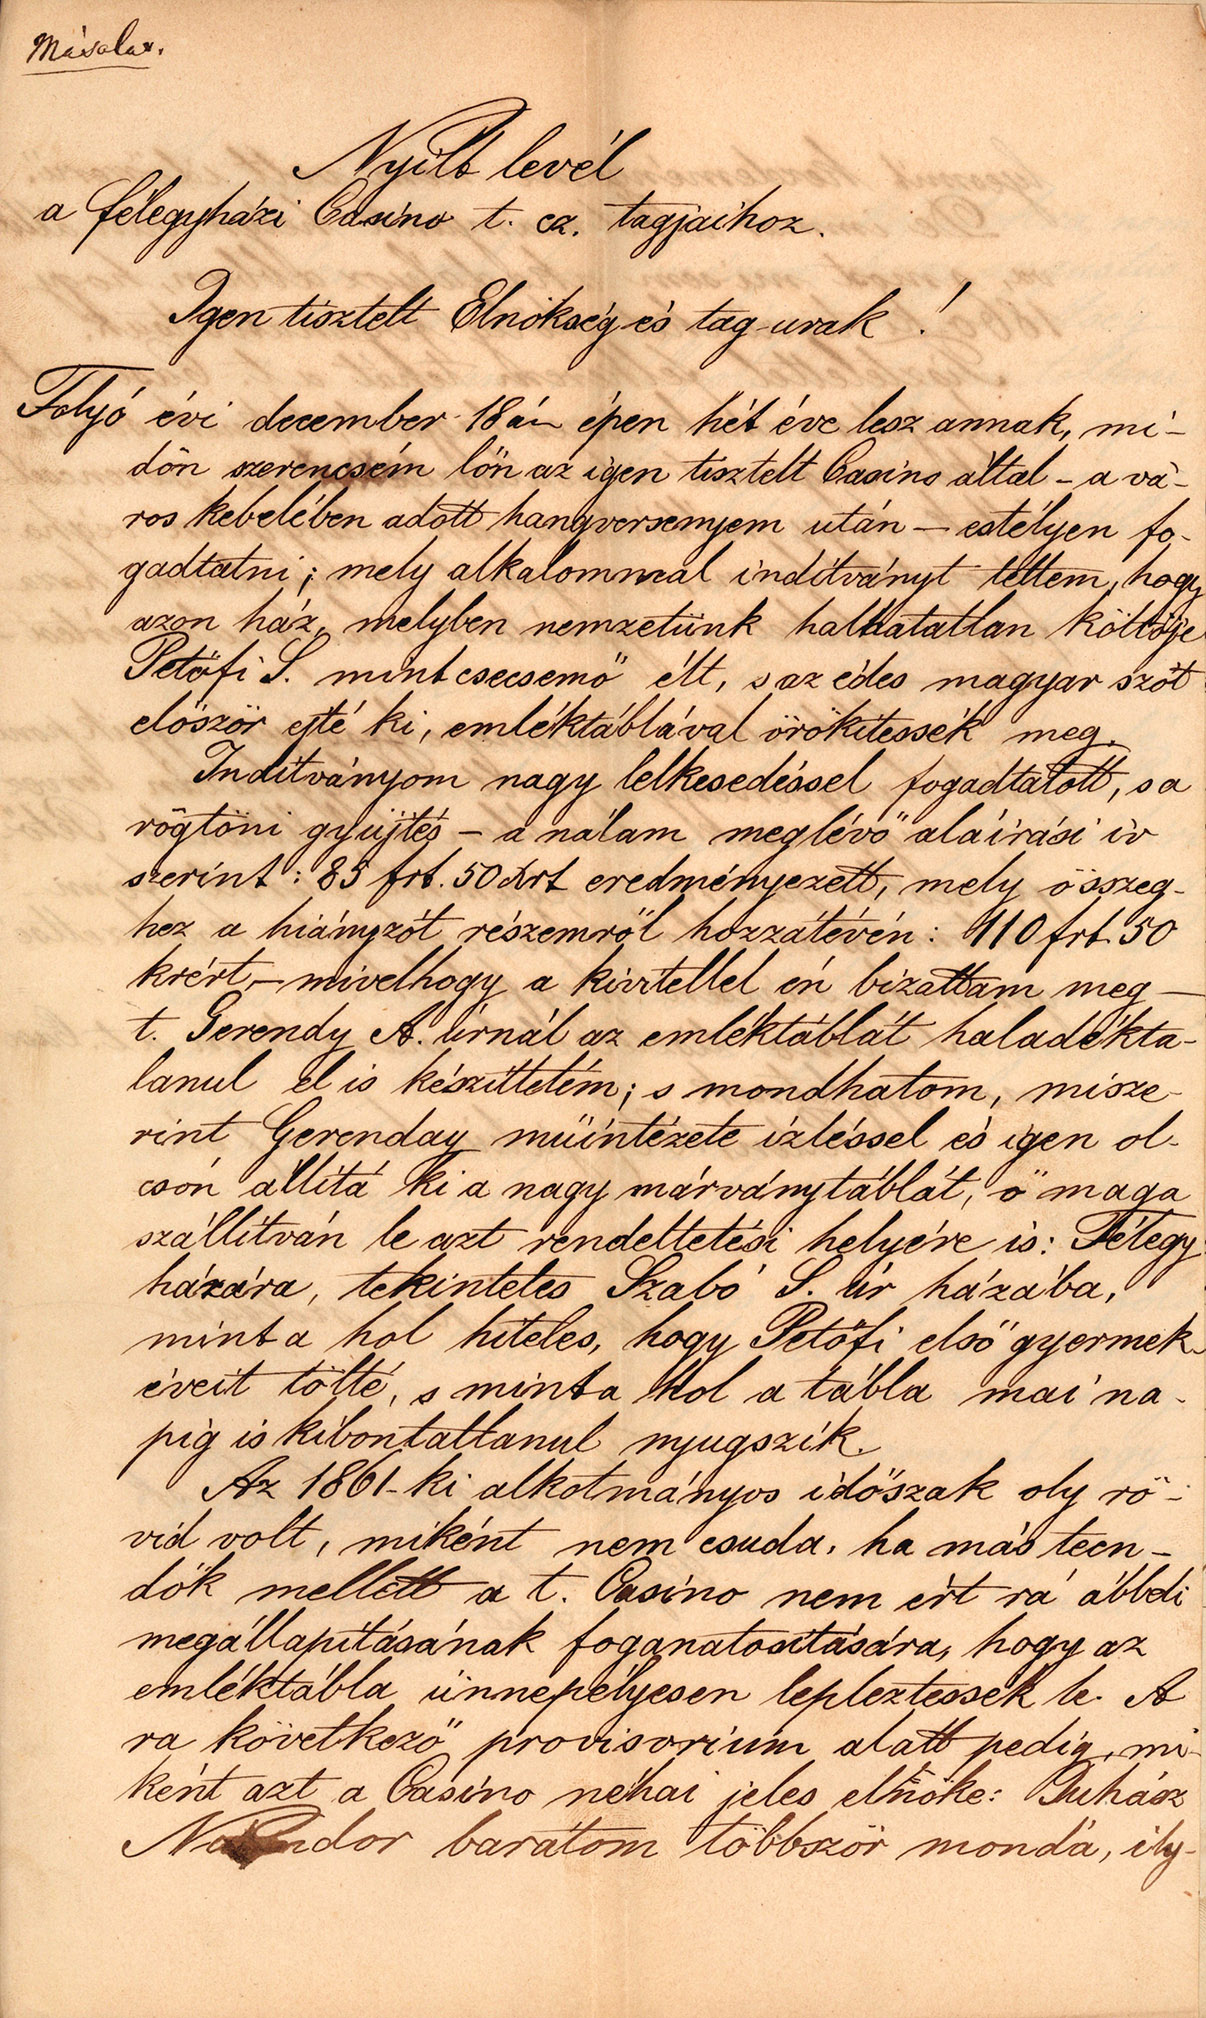 Másolat.
Nyilt levél
a félegyházi Casino t. cz. tagjaihoz.
Igen tisztelt Elnökség és tag-urak!
Folyó évi december 18án épen hét éve lesz annak, mi-
dőn szerencsém lőn az igen tisztelt Casino által – a vá-
ros kebelében adott hangversenyem után – estélyen fo-
gadtatni; mely alkalommal inditványt tettem, hogy
azon ház, melyben nemzetünk halhatatlan költője
Petőfi S. mint csecsemő élt, s az édes magyar szót
először ejté ki, emléktáblával örökitessék meg.
Inditványom nagy lelkesedéssel fogadtatott, s a
rögtöni gyüjtés – a nálam meglévő aláirási iv
szerint: 85 frt. 50 krt eredményezett, mely összeg-
hez a hiányzót részemről hozzátévén: 110 frt. 50
krért, – mivelhogy a kivitellel én bizattam meg –
t. Gerendy A. úrnál az emléktáblát haladékta-
lanul el is készittetém; s mondhatom, misze-
rint Gerenday müintézete izléssel és igen ol-
csón állitá ki a nagy márványtáblát, ő maga
szállitván le azt rendeltetési helyére is: Félegy
házára, tekintetes Szabó S. úr házába,
mint a hol hiteles, hogy Petőfi első gyermek
éveit tölté, s mint a hol a tábla mai na-
pig is kibontatlanul nyugszik.
Az 1861-ki alkotmányos időszak oly rö-
vid volt, miként nem csuda, ha más teen-
dők mellett a t. Casino nem ért rá ábbeli
megállapitásának foganatositására, hogy az
emléktábla ünnepélyesen lepleztessék le. A
ra következő provisorium alatt pedig, mi-
ként azt a Casino néhai jeles elnöke: Juhász
Nándor barátom többször mondá, ily-